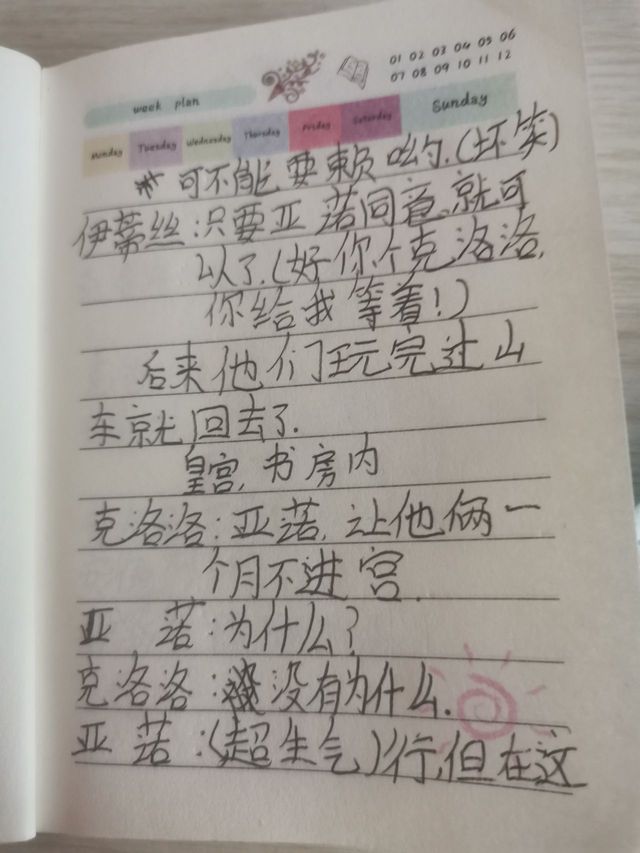 01 02 03 04 05 06
07 08 09 10 11 12
week plan
Monday Tuesday Wednesday Thursday Friday Saturday Sunday
可不能要赖哟.(坏笑)
伊蒂丝:只要亚诺同意,就可
以了.(好你个克洛洛,
你给我等着!)
后来他们玩完过山
车就回去了.
皇宫,书房内
克洛洛:亚诺,让他俩一
个月不进宫.
亚诺:为什么?
克洛洛:没有为什么.
亚诺:(超生气)行,但在这